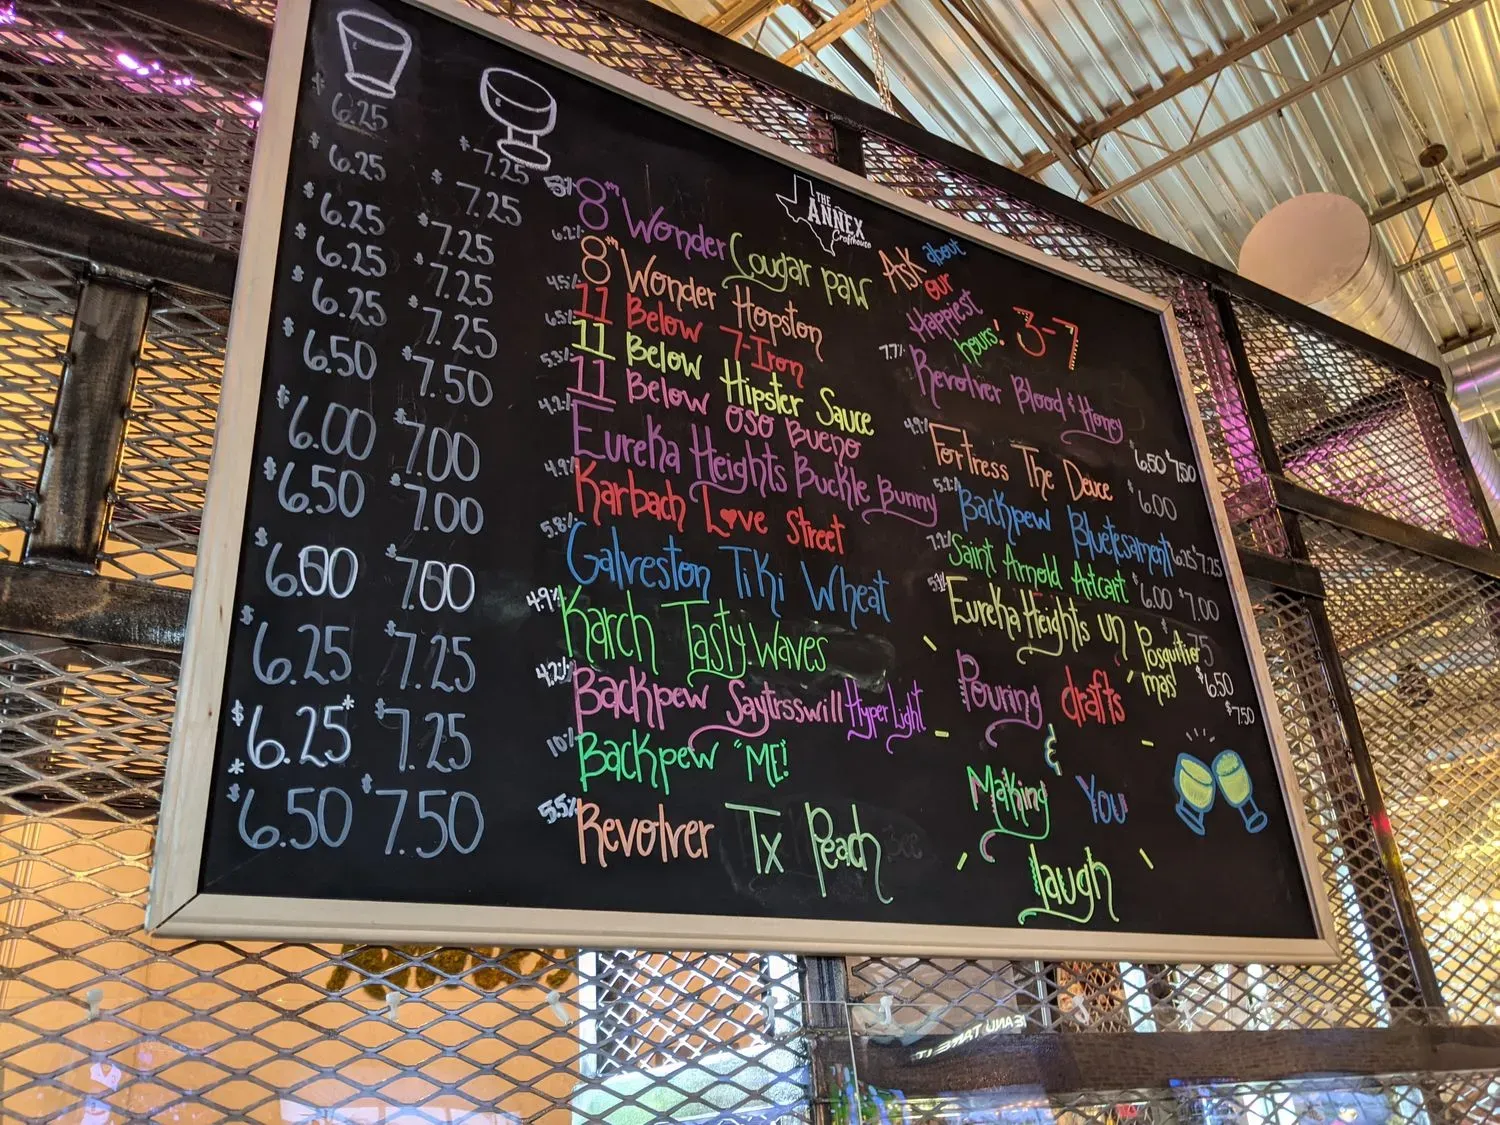 THE
ANNEX
Crafthouse
$ 6.25 $ 7.25 8th Wonder Cougar paw
$ 6.25 $ 7.25 6.2% 8th Wonder Hopston
$ 6.25 $ 7.25 4.5% 11 Below 7-Iron
$ 6.25 $ 7.25 6.5% 11 Below Hipster Sauce
$ 6.25 $ 7.25 5.3% 11 Below OSO Bueno
$ 6.50 $ 7.50 4.2% Eureka Heights Buckle Bunny
$ 6.00 $ 7.00 4.9% Karbach Love Street
$ 6.50 $ 7.00 5.8% Galveston Tiki Wheat
$ 6.00 $ 7.00 4.9% Karch Tasty Waves
$ 6.25 $ 7.25 4.2% Backpew Saytrsswill Hyper Light
$ 6.25* $ 7.25 10% Backpew "ME!
* $ 6.50 $ 7.50 5.5% Revolver Tx Peach
Ask about
our
Happiest
hours! 3-7
7.7% Revolver Blood & Honey $6.50 $7.50
Fortress The Deuce $6.00
5.2% Backpew Bluetesament 6.25 $7.25
7.2% Saint Arnold Artcart $6.00 $7.00
Eureka Heights un Posquitio
mas! $6.50
$7.50
Pouring drafts
&
Making You
laugh